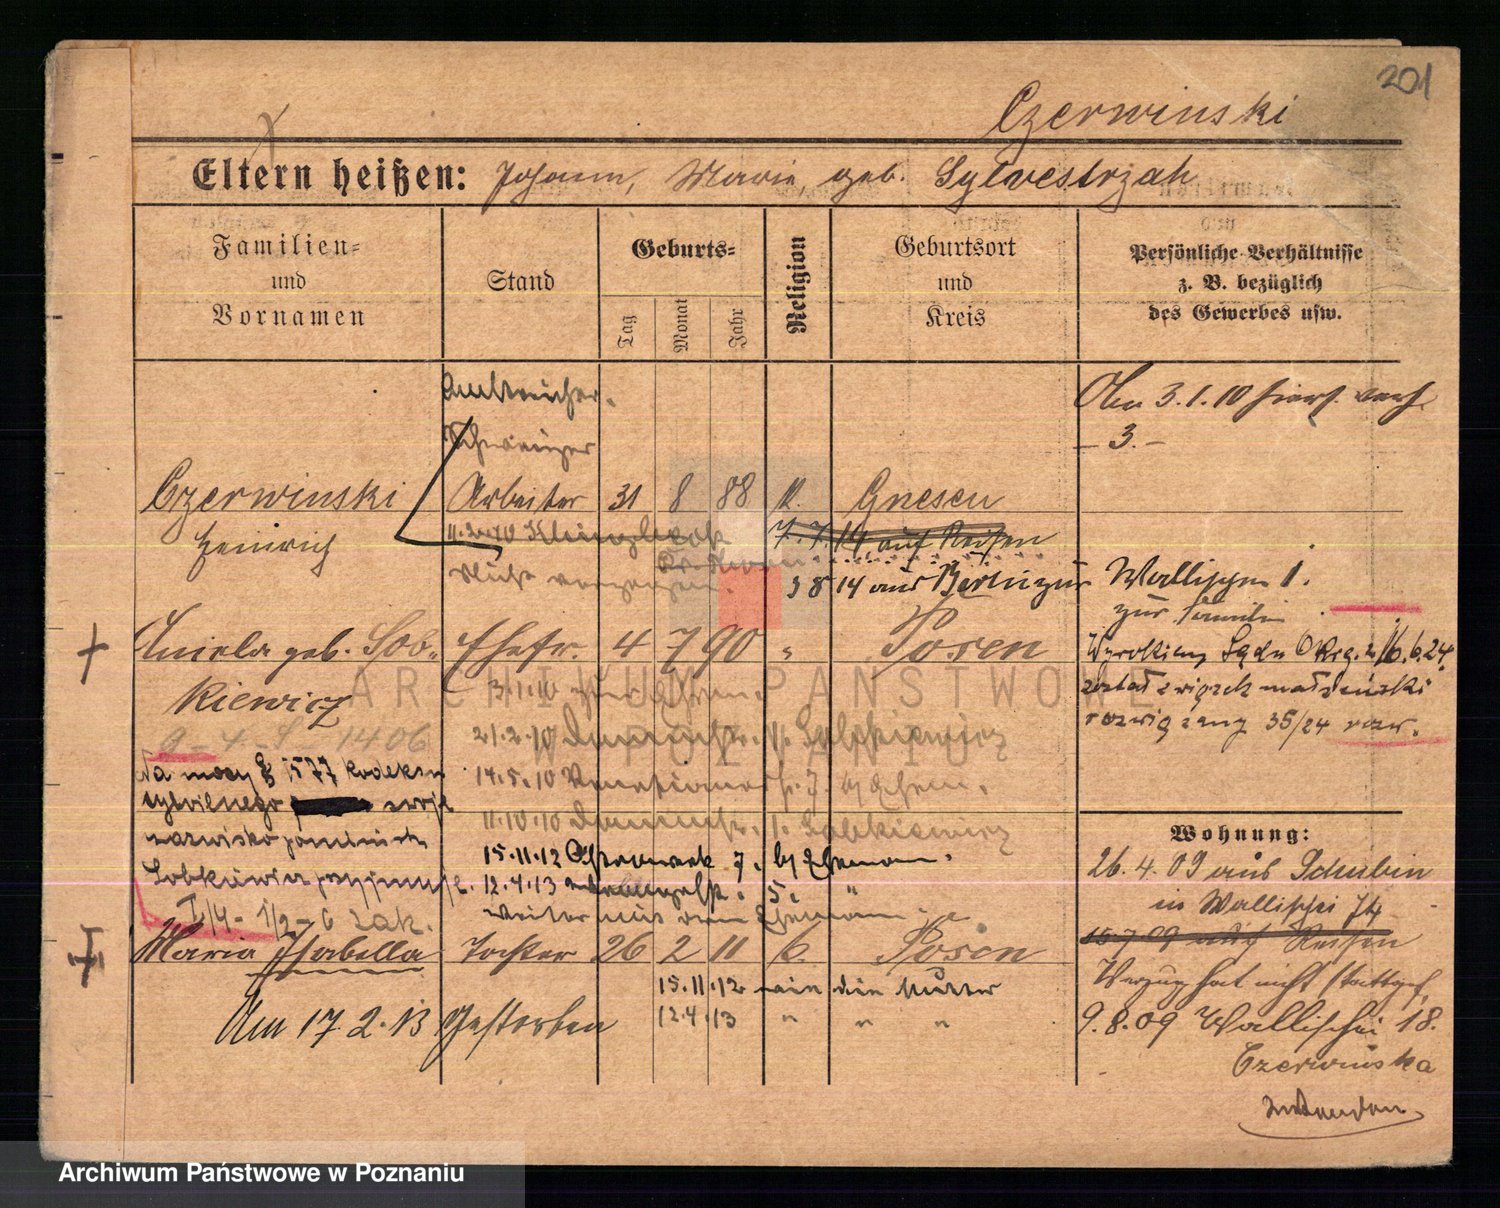 201
Czerwinski
Eltern heißen: Johann, Marie geb. Sylvestrzak
Familien=
und
Vornamen
Stand
Geburts=
Tag
Monat
Jahr
Religion
Geburtsort
und
Kreis
Persönliche Verhältnisse
z. B. bezüglich
des Gewerbes usw.
Anstreicher.
3.1.10
3.
Czerwinski Arbeiter 31 8 88 k. Gnesen
Heinrich
11.2.10
7.7.14 auf Reisen
3 8 14 aus Berlin zur
Wallischei 1.
zur Familie
Aniela geb. Sob- Ehefr. 4 7 90 " Posen
kiewicz
3.1.10 zur Ehem.
9-4-1406
Wyrokiem Sądu Okrę. z 16.6.24
został związek małżeński
rozwiązany 35/24 rozw.
21.2.10 Sobkiewicz
14.5.10 b/ Ehem.
11.10.10 Sobkiewicz
15.11.12 b/ Ehemann.
12.4.13 5. "
weiter mit dem Ehemann
Na mocy § 1577 kodeksu
cywilnego swoje
nazwisko panieńskie
Sobkiewicz przyjmuje.
Wohnung:
26.4.09 aus Schubin
in Wallischei 74
15.7.09 auf Reisen
Verzug hat nicht stattgef.
9.8.09 Wallischei 18.
Czerwinska
Maria Isabella Tochter 26 2 11 k. Posen
15.11.12 wie die Mutter
12.4.13 " " "
Am 17.2.13 gestorben
ARCHIWUM PAŃSTWOWE
W POZNANIU
Archiwum Państwowe w Poznaniu